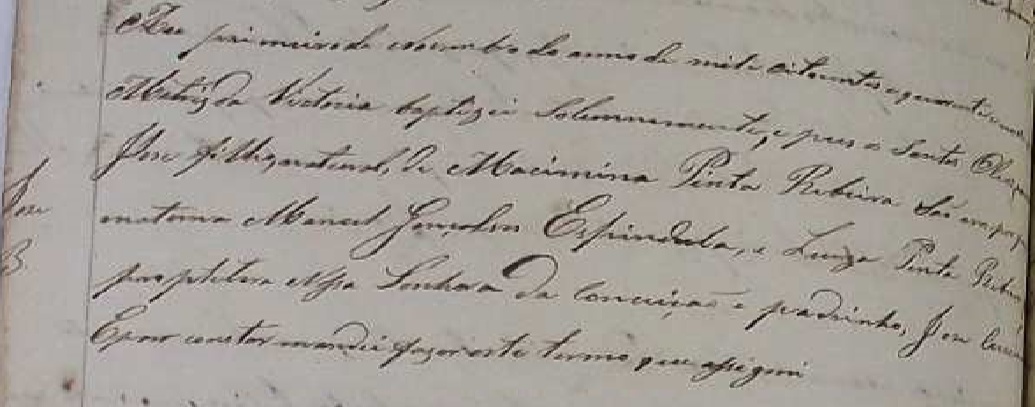 Ao primeiro de Novembro do anno de mil e oitocentos e quarenta e
Matriz da Victoria baptizei Solemnemente, e pus os Santos Oleos
Jose filho natural, de Macimina Pinta Ribeira São avos
Jose
materna Manoel Gonçalves Espindula, e Luiza Pinta Ribeira
B
protetora Nossa Senhora da Conceição e padrinho, Jose
E por constar mandei fazer este termo que assignei